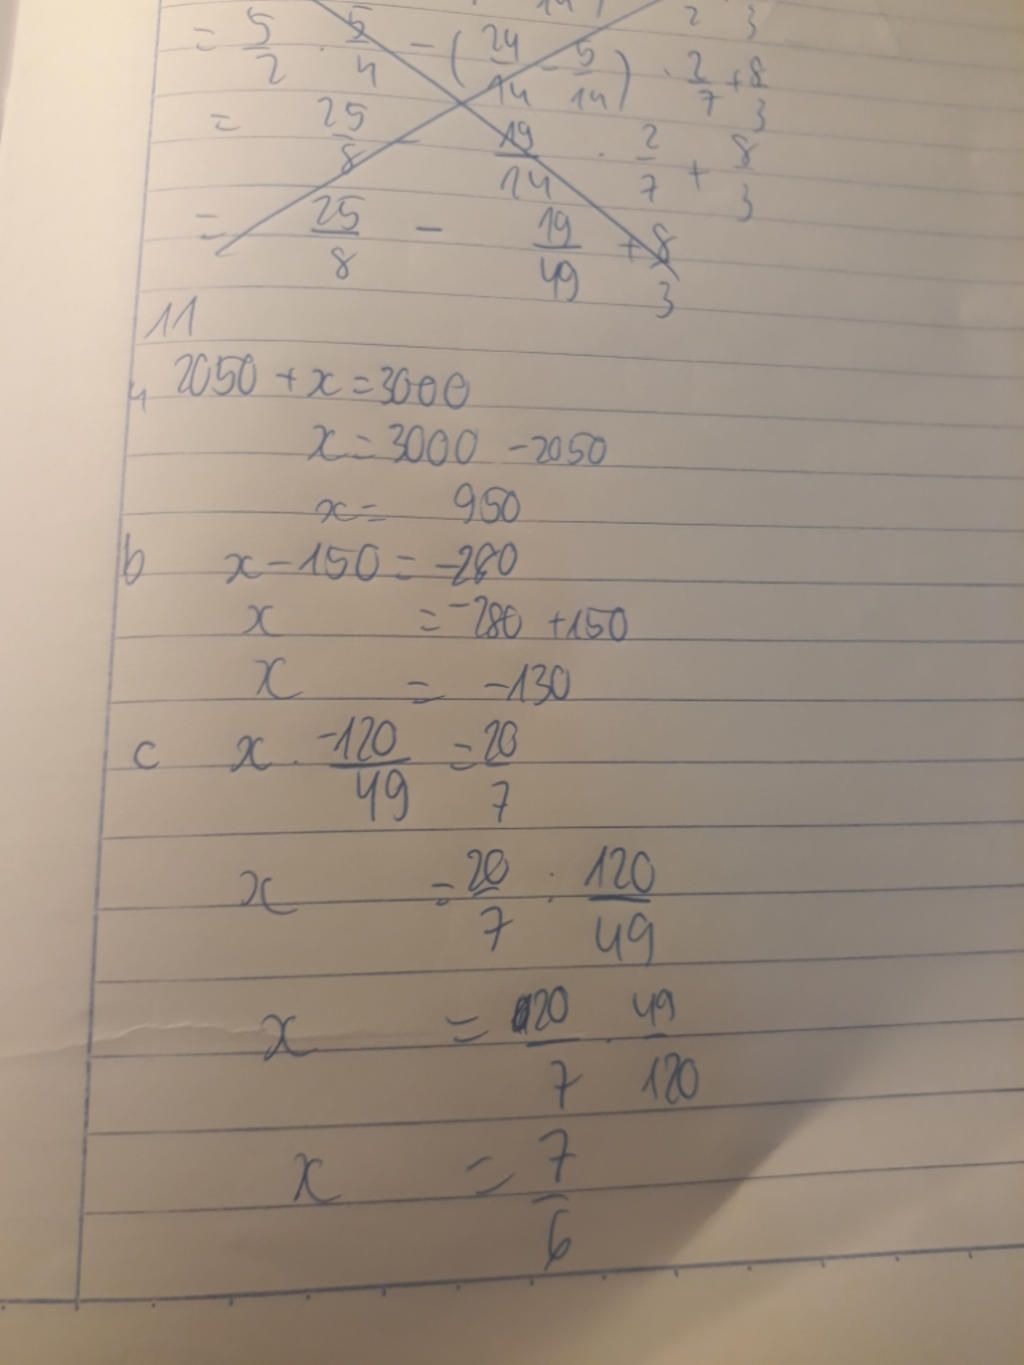 = 5/2 · 5/4 - (24/14 - 5/14) · 2/7 + 8/3
= 25/8 - 19/14 · 2/7 + 8/3
= 25/8 - 19/49 + 8/3
11
2050 + x = 3000
x = 3000 - 2050
x = 950
b x - 150 = -280
x = -280 + 150
x = -130
c x · -120/49 = 20/7
x = 20/7 : 120/49
x = 20/7 · 49/120
x = 7/6